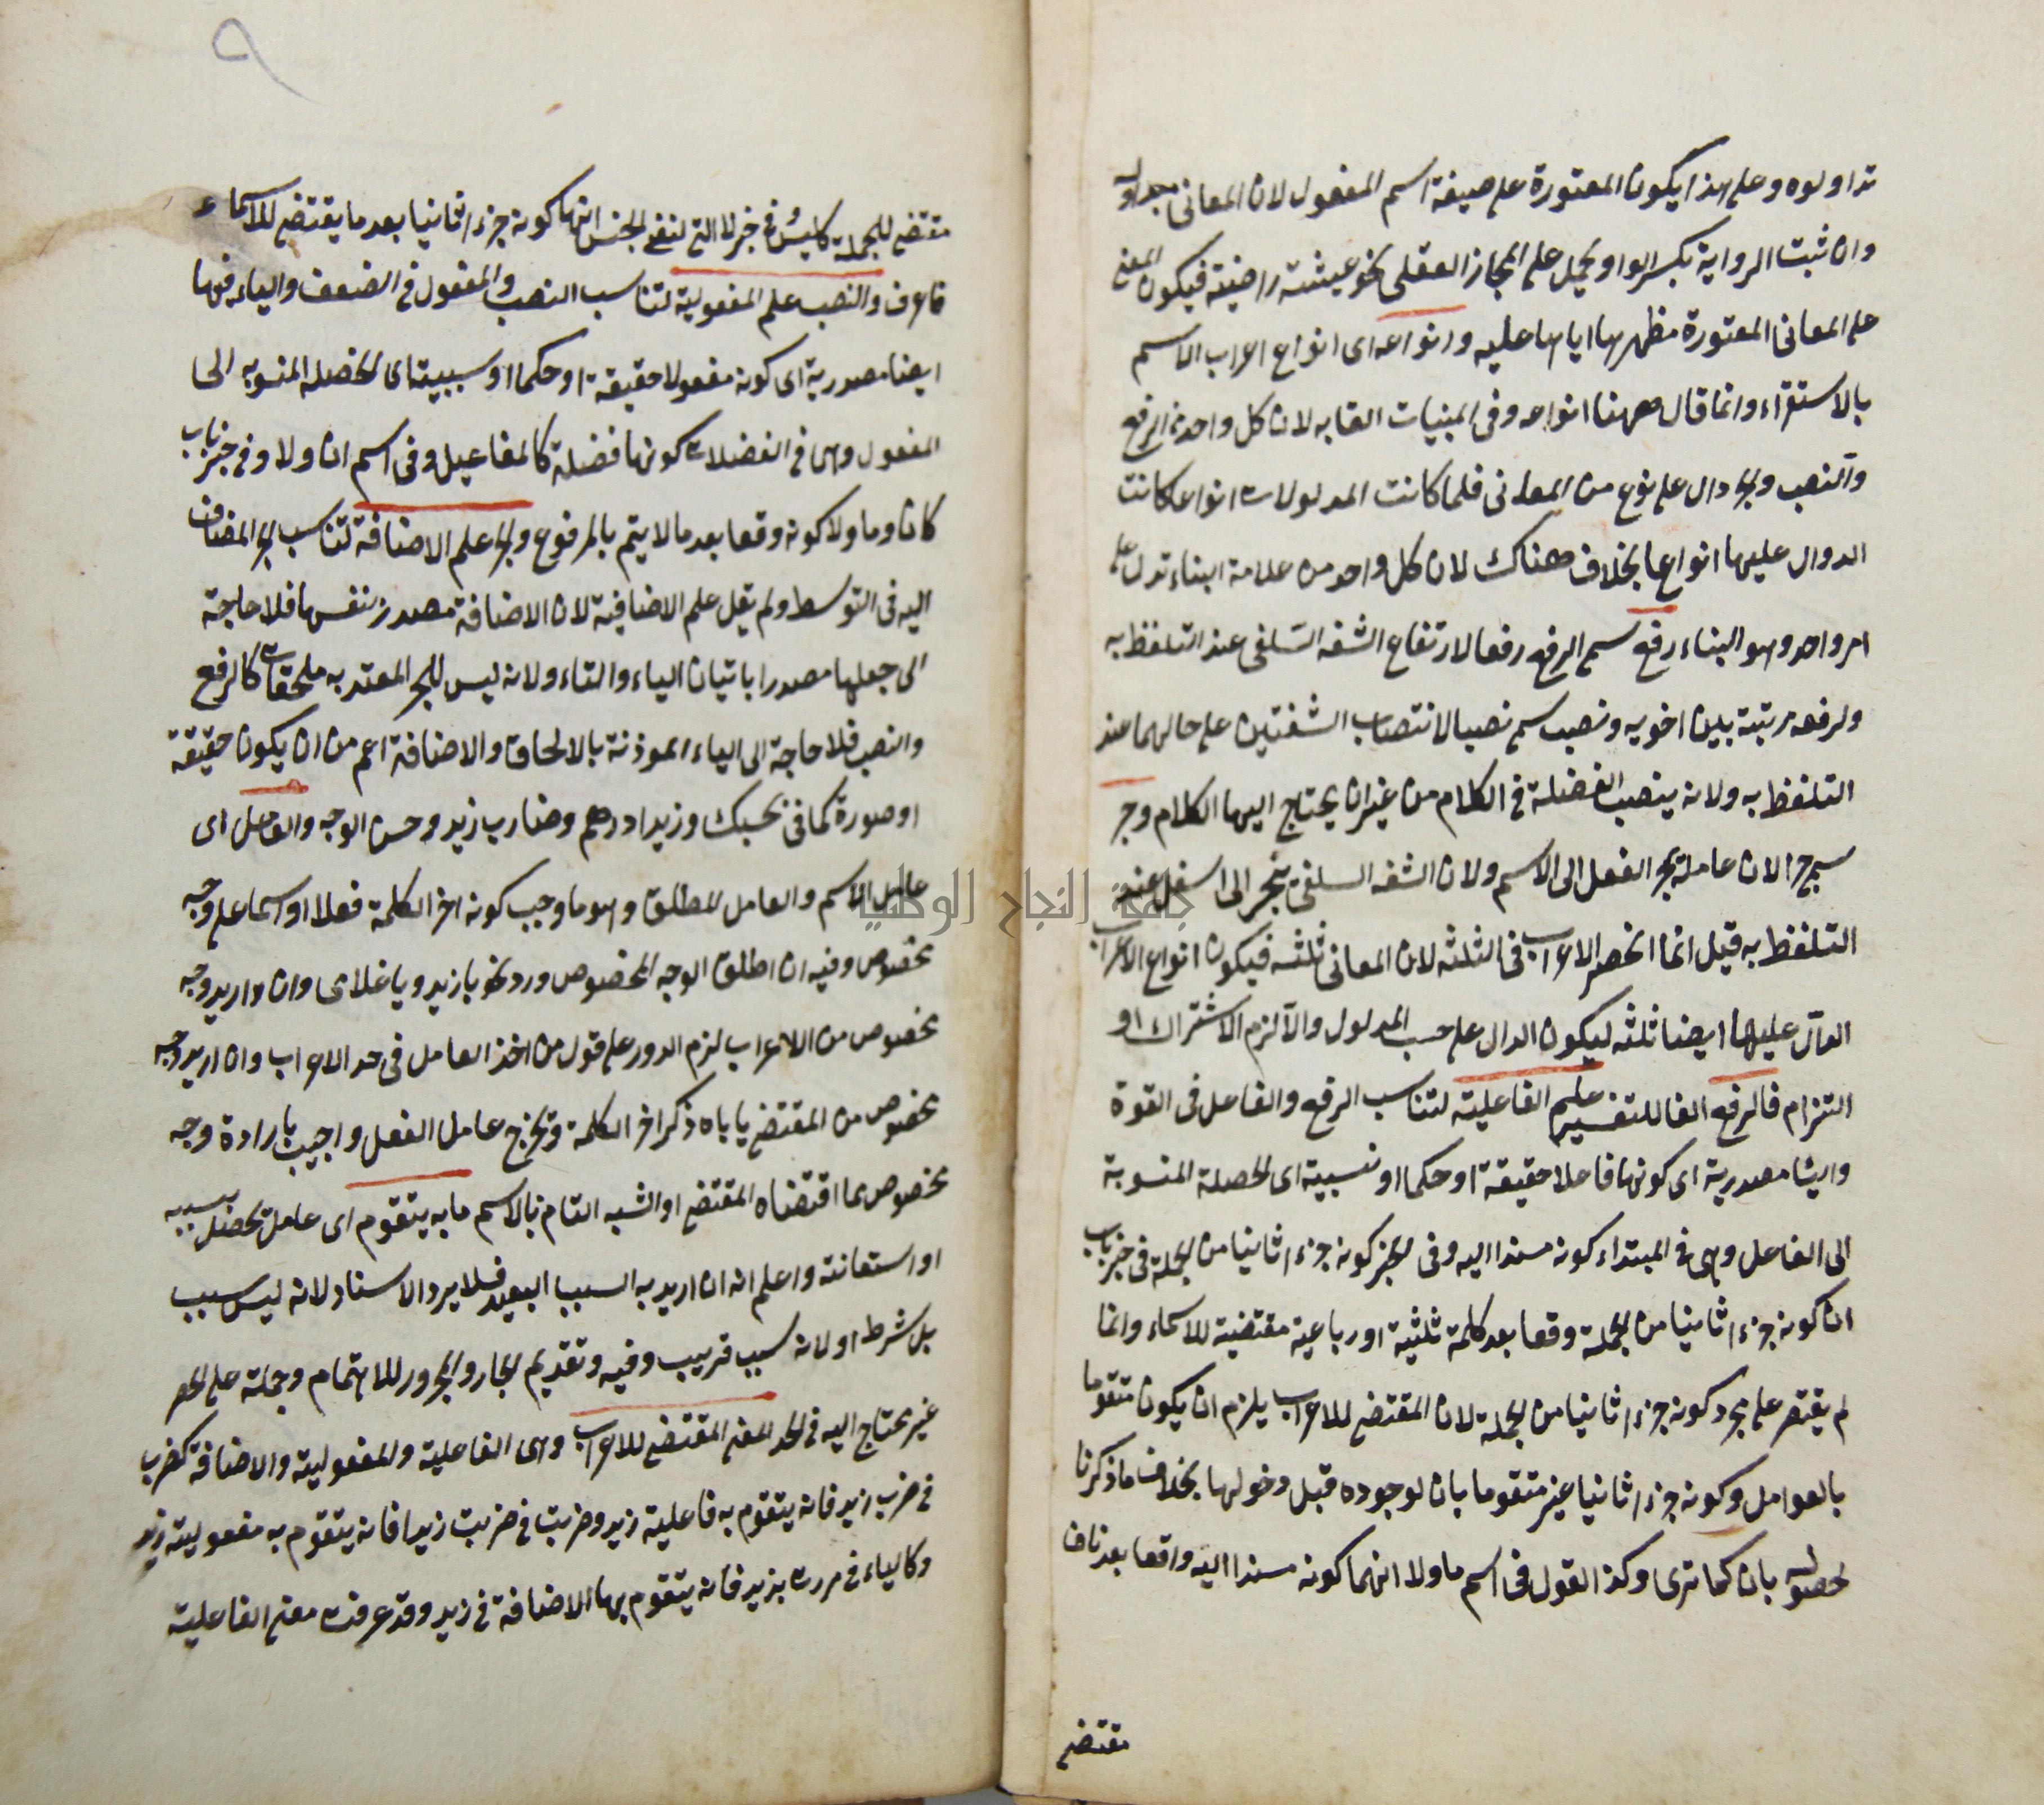 تداولوه وعلى هذا يكون المعتورة على صيغة اسم المفعول لان المعانى متداولة
وان ثبت الرواية بكسر الواو يحمل على المجاز العقلى نحو عيشة راضية فيكون المعنى
على المعانى المعتورة مظهرها اياها عليه وانواعه اى انواع اعراب الاسم
بالاستقراء وانما قال ههنا انواعه وفى المبنيات القابه لان كل واحد من الرفع
والنصب والجر دال على نوع من المعانى فلما كانت المدلولات انواعا كانت
الدوال عليها انواعا بخلاف هناك لان كل واحد من علامة البناء تدل على
امر واحد وهو البناء رفع سمى الرفع رفعا لارتفاع الشفه السفلى عند التلفظ به
ولرفعه مرتبة بين اخويه ونصب سمى نصبا لانتصاب الشفتين على حالهما عند
التلفظ به ولانه ينصب الفضلة فى الكلام من غير ان يحتاج اليها الكلام وجر
سمى جرا لان عامله يجر الفعل الى الاسم ولان الشفه السفلى ينجر الى اسفل عند
التلفظ به قيل انما انحصر الاعراب فى الثلثه لان المعانى ثلثه فيكون انواع الاعراب
الدال عليها ايضا ثلثه ليكون الدال على حسب المدلول والا لزم الاشتراك او
التزام فالرفع الفا للتفسير علم الفاعلية لتناسب الرفع والفاعل فى القوة
مصدرية اى كونها فاعلا حقيقة او حكما او نسبية اى الخصلة المنسوبة
الى الفاعل وهى فى المبتداء كونه مسندا اليه وفى الخبر كونه جزءا ثانيا من الجملة فى خبر باب
ان كونه جزءا ثانيا من الجملة وقعا بعد كلمة ثلثية او رباعية مقتضية للاسماء وانما
لم يقتصر على مجرد كونه جزءا ثانيا من الجملة لان المقتضى للاعراب يلزم ان يكون متقوما
بالعوامل وكونه جزءا ثانيا غير متقوما بان لوجوده قبل دخولها بخلاف ما ذكرنا
لحصوله بان كما ترى وكذ القول فى اسم ما ولا انهما كونه مسندا اليه واقعا بعد ناف
مقتضى
٩
مقتضى للجملة كليس فى خبر لا التى لنفى الجنس انها كونه جزءا ثانيا بعد ما يقتضى للاسماء
فاعرف والنصب علم المفعولية لتناسب النصب والمفعول فى الضعف والياء فيها
ايضا مصدرية اى كونه مفعولا حقيقة او حكما او سببية اى الخصلة المنسوبه الى
المفعول وهى فى الفضلات كونها فضلة كالمفاعيل وفى اسم ان ولا وفى خبر باب
كان وما ولا كونه وقعا بعد ما لا يتم بالمرفوع والجر علم الاضافة لتناسب الجر المضاف
اليه فى التوسط ولم يقل علم الاضافية لان الاضافة مصدر بنفسها فلا حاجة
الى جعلها مصدرا باتيان الياء والتاء ولانه ليس للجر المعتد به ملحقات كالرفع
والنصب فلا حاجة الى الياء الموذنة بالالحاق والاضافة اعم من ان يكون حقيقة
او صورة كما فى بحسبك وزيد اددرهم وضارب زيد وحسن الوجه والعامل اى
عامل الاسم والعامل المطلق وهو ما وجب كونه اخر الكلمة فعلا او اسما على وجه
مخصوص وفيه ان اطلق الوجه المخصوص ورد نحو يا زيد ويا غلامى وان اريد وجه
مخصوص من الاعراب لزم الدور على قول من اخذ العامل فى حد الاعراب وان اريد وجه
مخصوص من المقتضى ياباه ذكر اخر الكلمة وتخرج عامل الفعل واجيب بارادة وجه
مخصوص مما اقتضاه المقتضى او الشبه التام بالاسم ما به يتقوم اى عامل يحصل بسببه
او استعانته واعلم انه ان اريد به السبب البعيد فلا يرد الاسناد لانه ليس بسبب
بل شرط او لانه سبب قريب وفيه وتقديم الجار والمجرور للاهتمام وحمله على الحصر
غير محتاج اليه فى الحد المعنى المقتضى للاعراب وهى الفاعلية والمفعولية والاضافة كضرب
فى ضرب زيد فانه يتقوم به فاعلية زيد وضربت فى ضربت زيدا فانه يتقوم به مفعولية زيد
وكالياء فى مررت بزيد فانه يتقوم بها الاضافة فى زيد وقد عرفت معنى الفاعلية
جامعة النجاح الوطنية